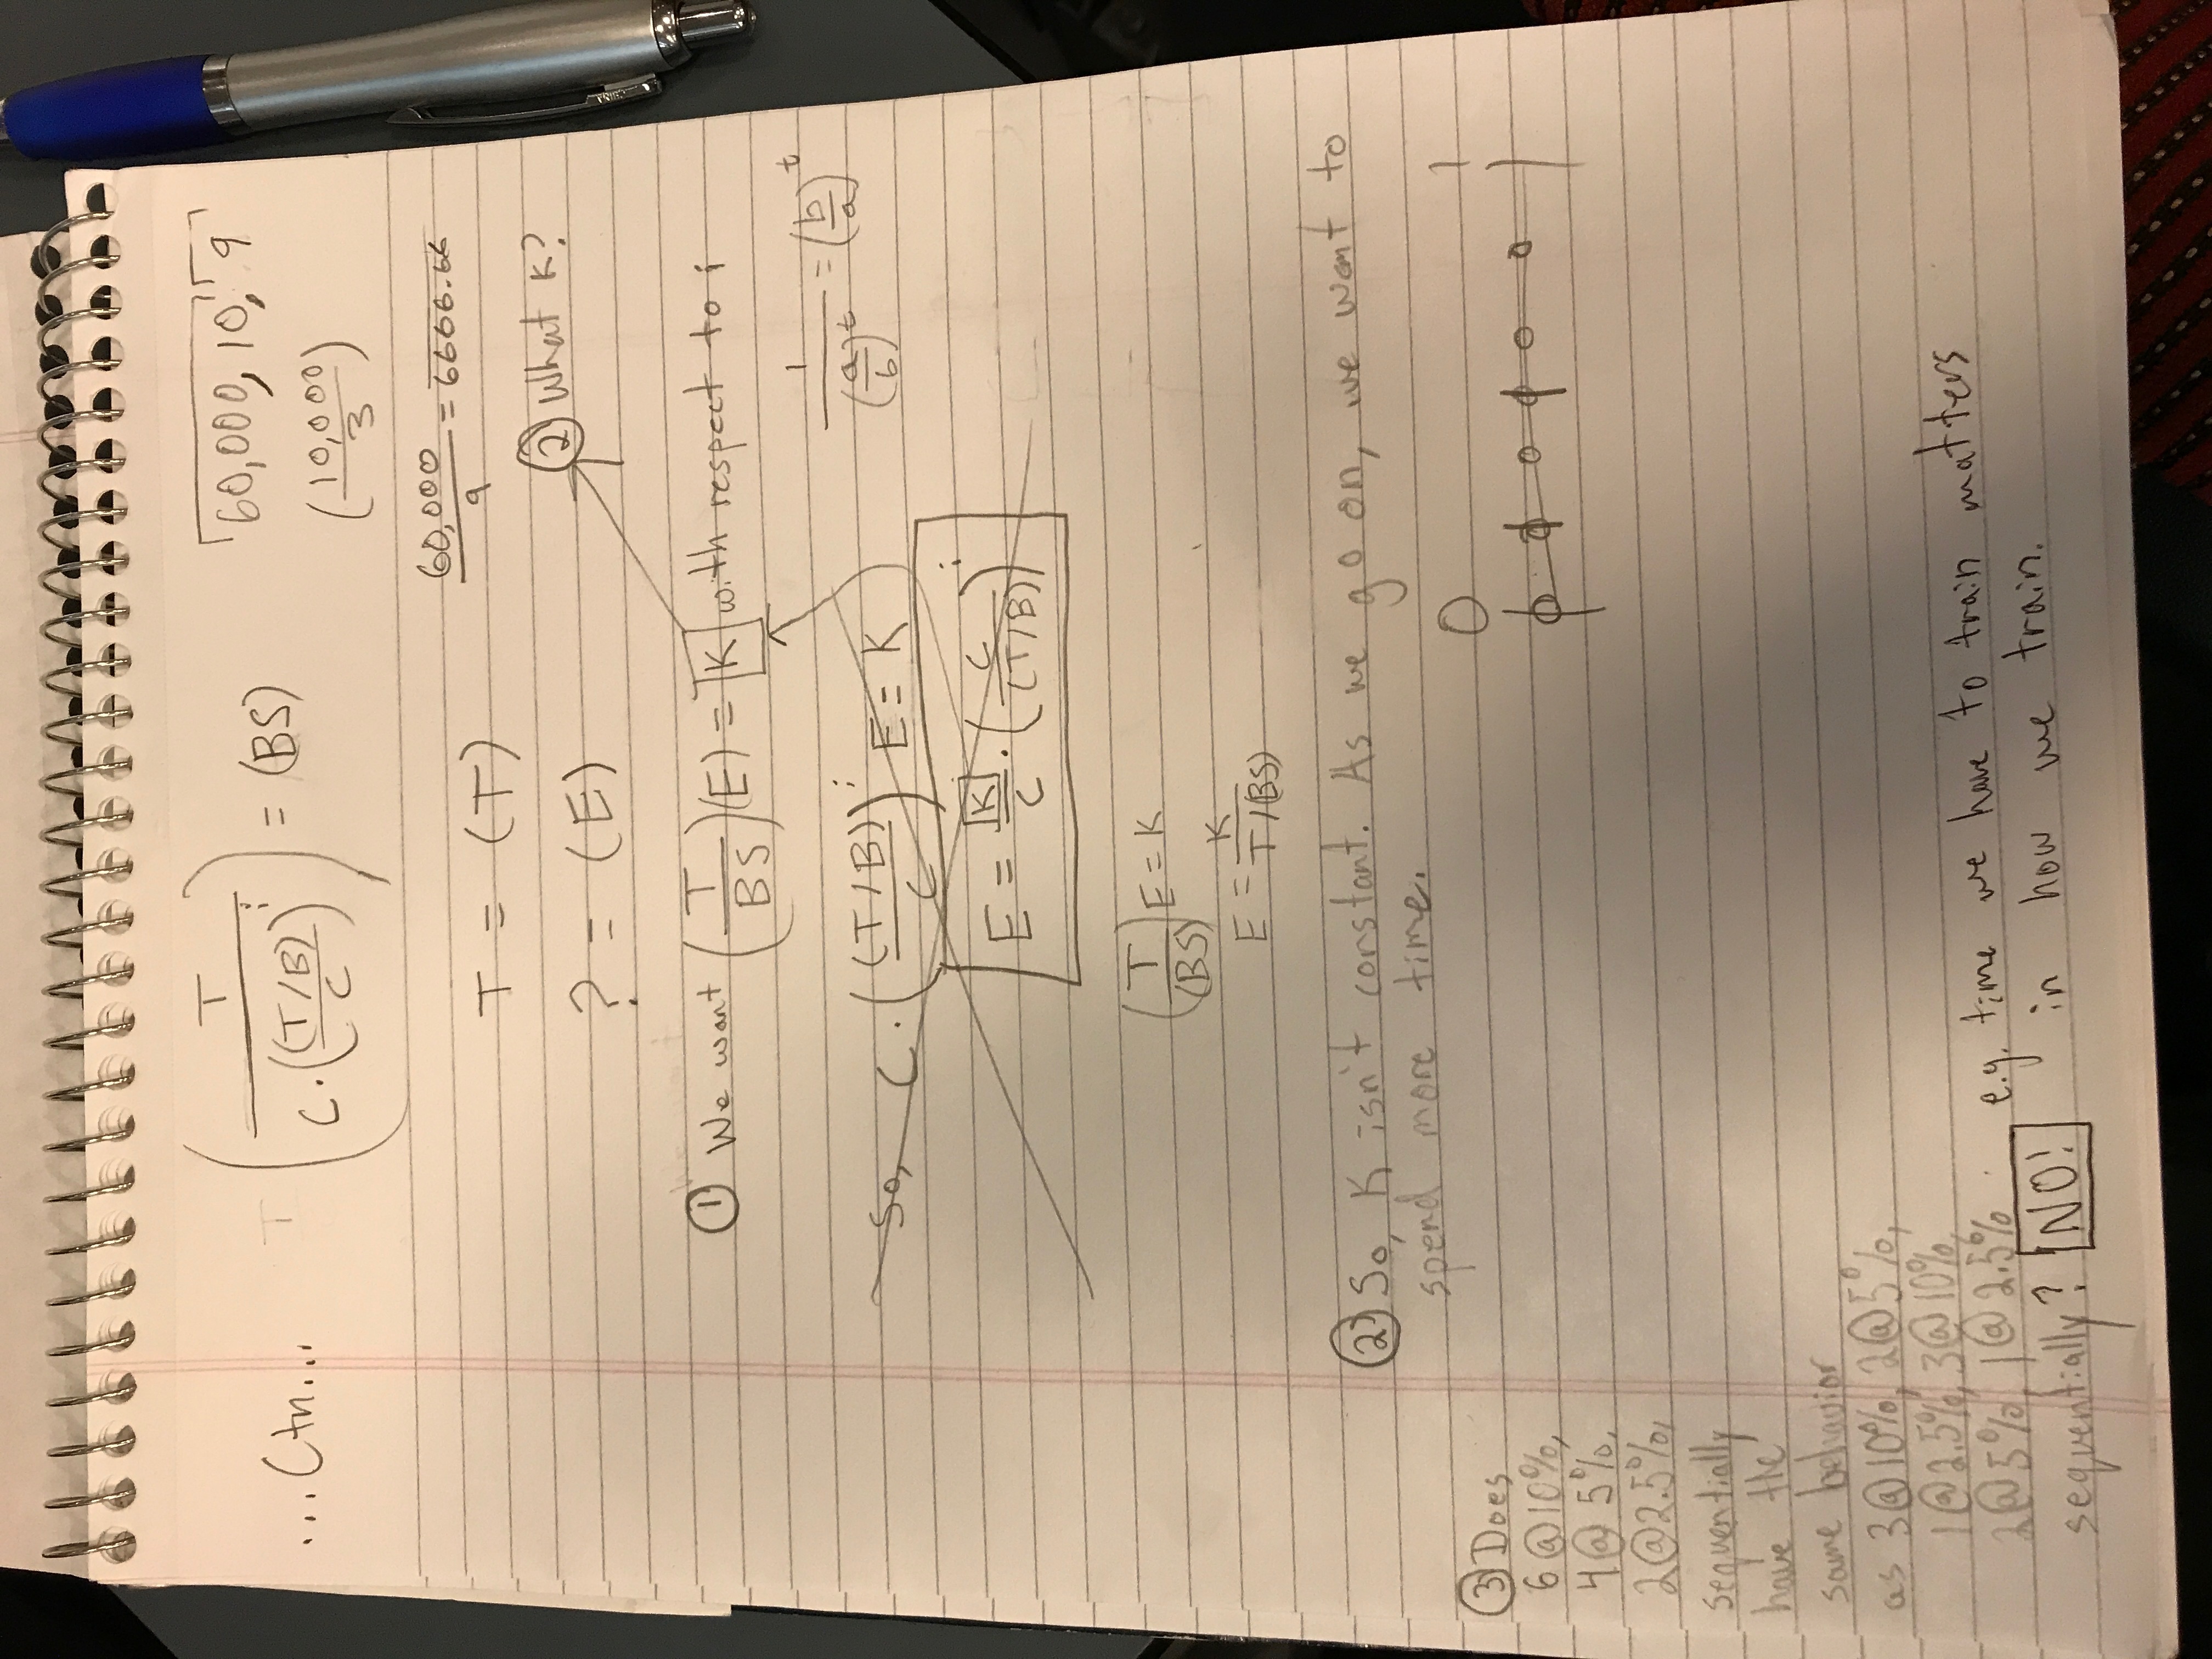 ...Ctn...
( T / (C · ((T/B)/C)^i) ) = (BS)
60,000, 10, 9
(10,000/3)
T = (T)
60,000/9 = 6666.66
? = (E)
② What K?
① We want (T/BS)(E) = K with respect to i
So, C · ((T/B)/C)^i E = K
1/(a/b)^t = (b/a)^t
E = K/C · (C/(T/B))^i
(T/(BS)) E = K
E = K/(T/(BS))
② So, K isn't constant. As we go on, we want to
spend more time.
0 1
③ Does
6@10%,
4@5%,
2@2.5%,
sequentially
have the
same behavior
as 3@10%, 2@5%,
1@2.5%, 3@10%,
2@5%, 1@2.5%
sequentially? NO!
e.g. time we have to train matters
in how we train.